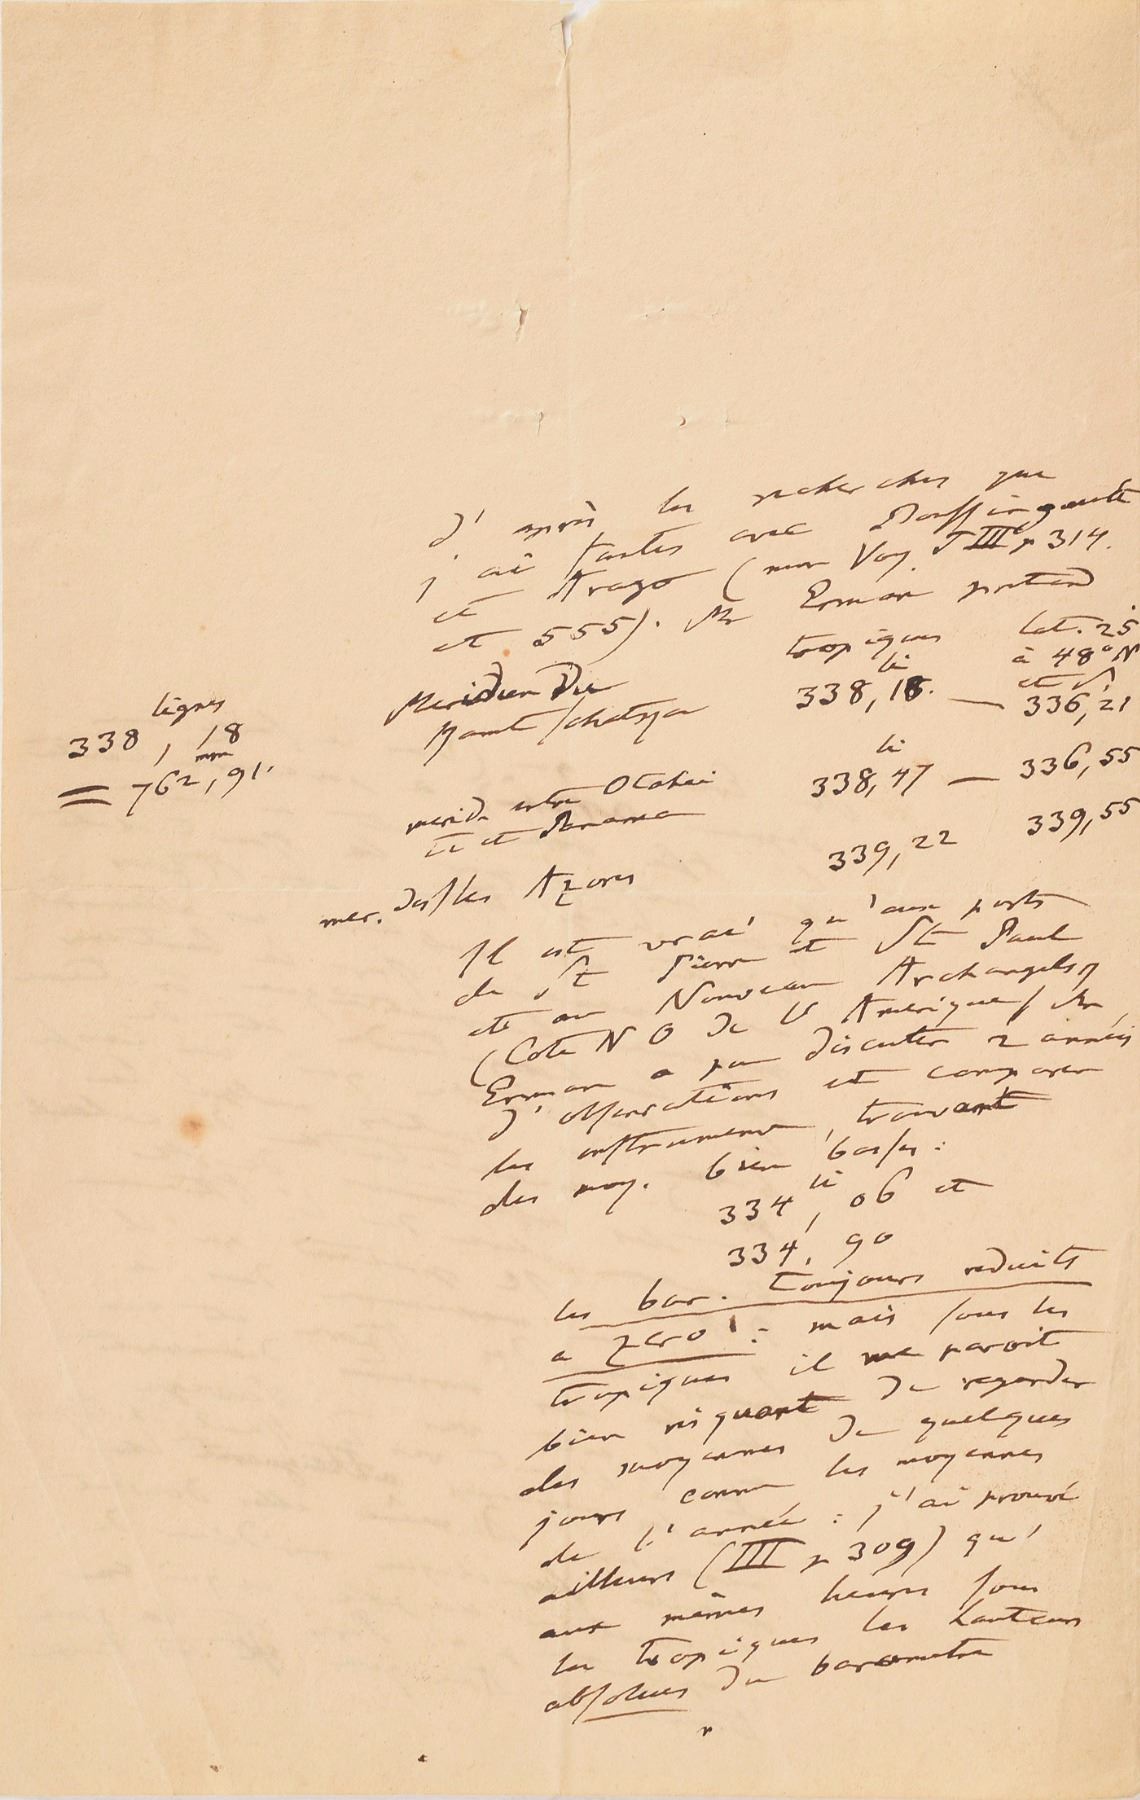 d'après les recherches que
j'ai faites avec Boussingault
et Arago (mon Voy. T III p 314.
et 555). Mr Erman pretend
tropiques lat. 25°
à 48° N
et S
Meridien du li
Kamtschatka 338,18. — 336,21
lignes
338, 18
= 762,91. mm
li
merid. entre Otahei 338,47 — 336,55
ti et Panama
mer. des Iles Azores 339,22 339,55
Il est vrai qu'aux ports
de St Pierre et St Paul
et au Nouveau Archangelsk
(Cote N O de l'Amerique) Mr
Erman a pu discuter 2 années
d'observations et comparer
les instrumens, trouvant
des moy. bien basses:
334 li, 06 et
334, 90
les bar. toujours reduits
a zero!: mais sous les
tropiques il me paroit
bien risquant de regarder
des moyennes de quelques
jours comme les moyennes
de l'année: j'ai prouvé
ailleurs (III p 309) qu'
aux mêmes heures sous
les tropiques les hauteurs
absolues du barometre